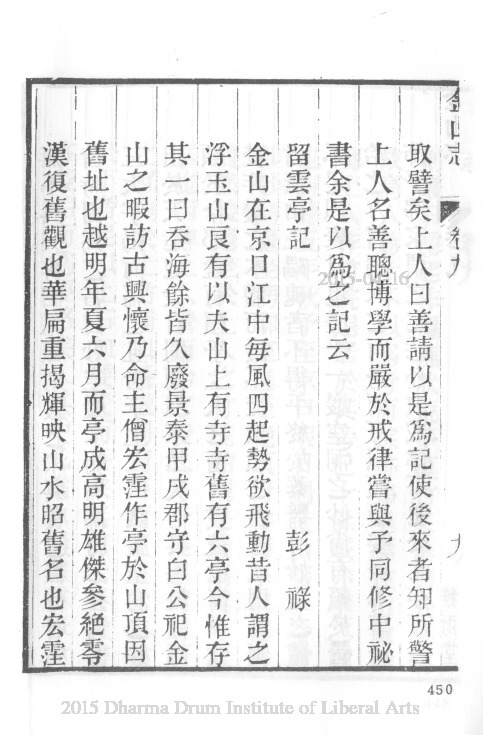 金山志
卷九
九
取譬矣上人曰善請以是爲記使後來者知所警
上人名善聰博學而嚴於戒律嘗與予同修中祕
書余是以爲之記云
留雲亭記 彭祿
金山在京口江中毎風四起勢欲飛動昔人謂之
浮玉山良有以夫山上有寺寺舊有六亭今惟存
其一曰吞海餘皆久廢景泰甲戌郡守白公祀金
山之暇訪古興懷乃命主僧宏霔作亭於山頂因
舊址也越明年夏六月而亭成高明雄傑參絶零
漢復舊觀也華扁重揭輝映山水昭舊名也宏霔
2015-04-16
450
2015 Dharma Drum Institute of Liberal Arts